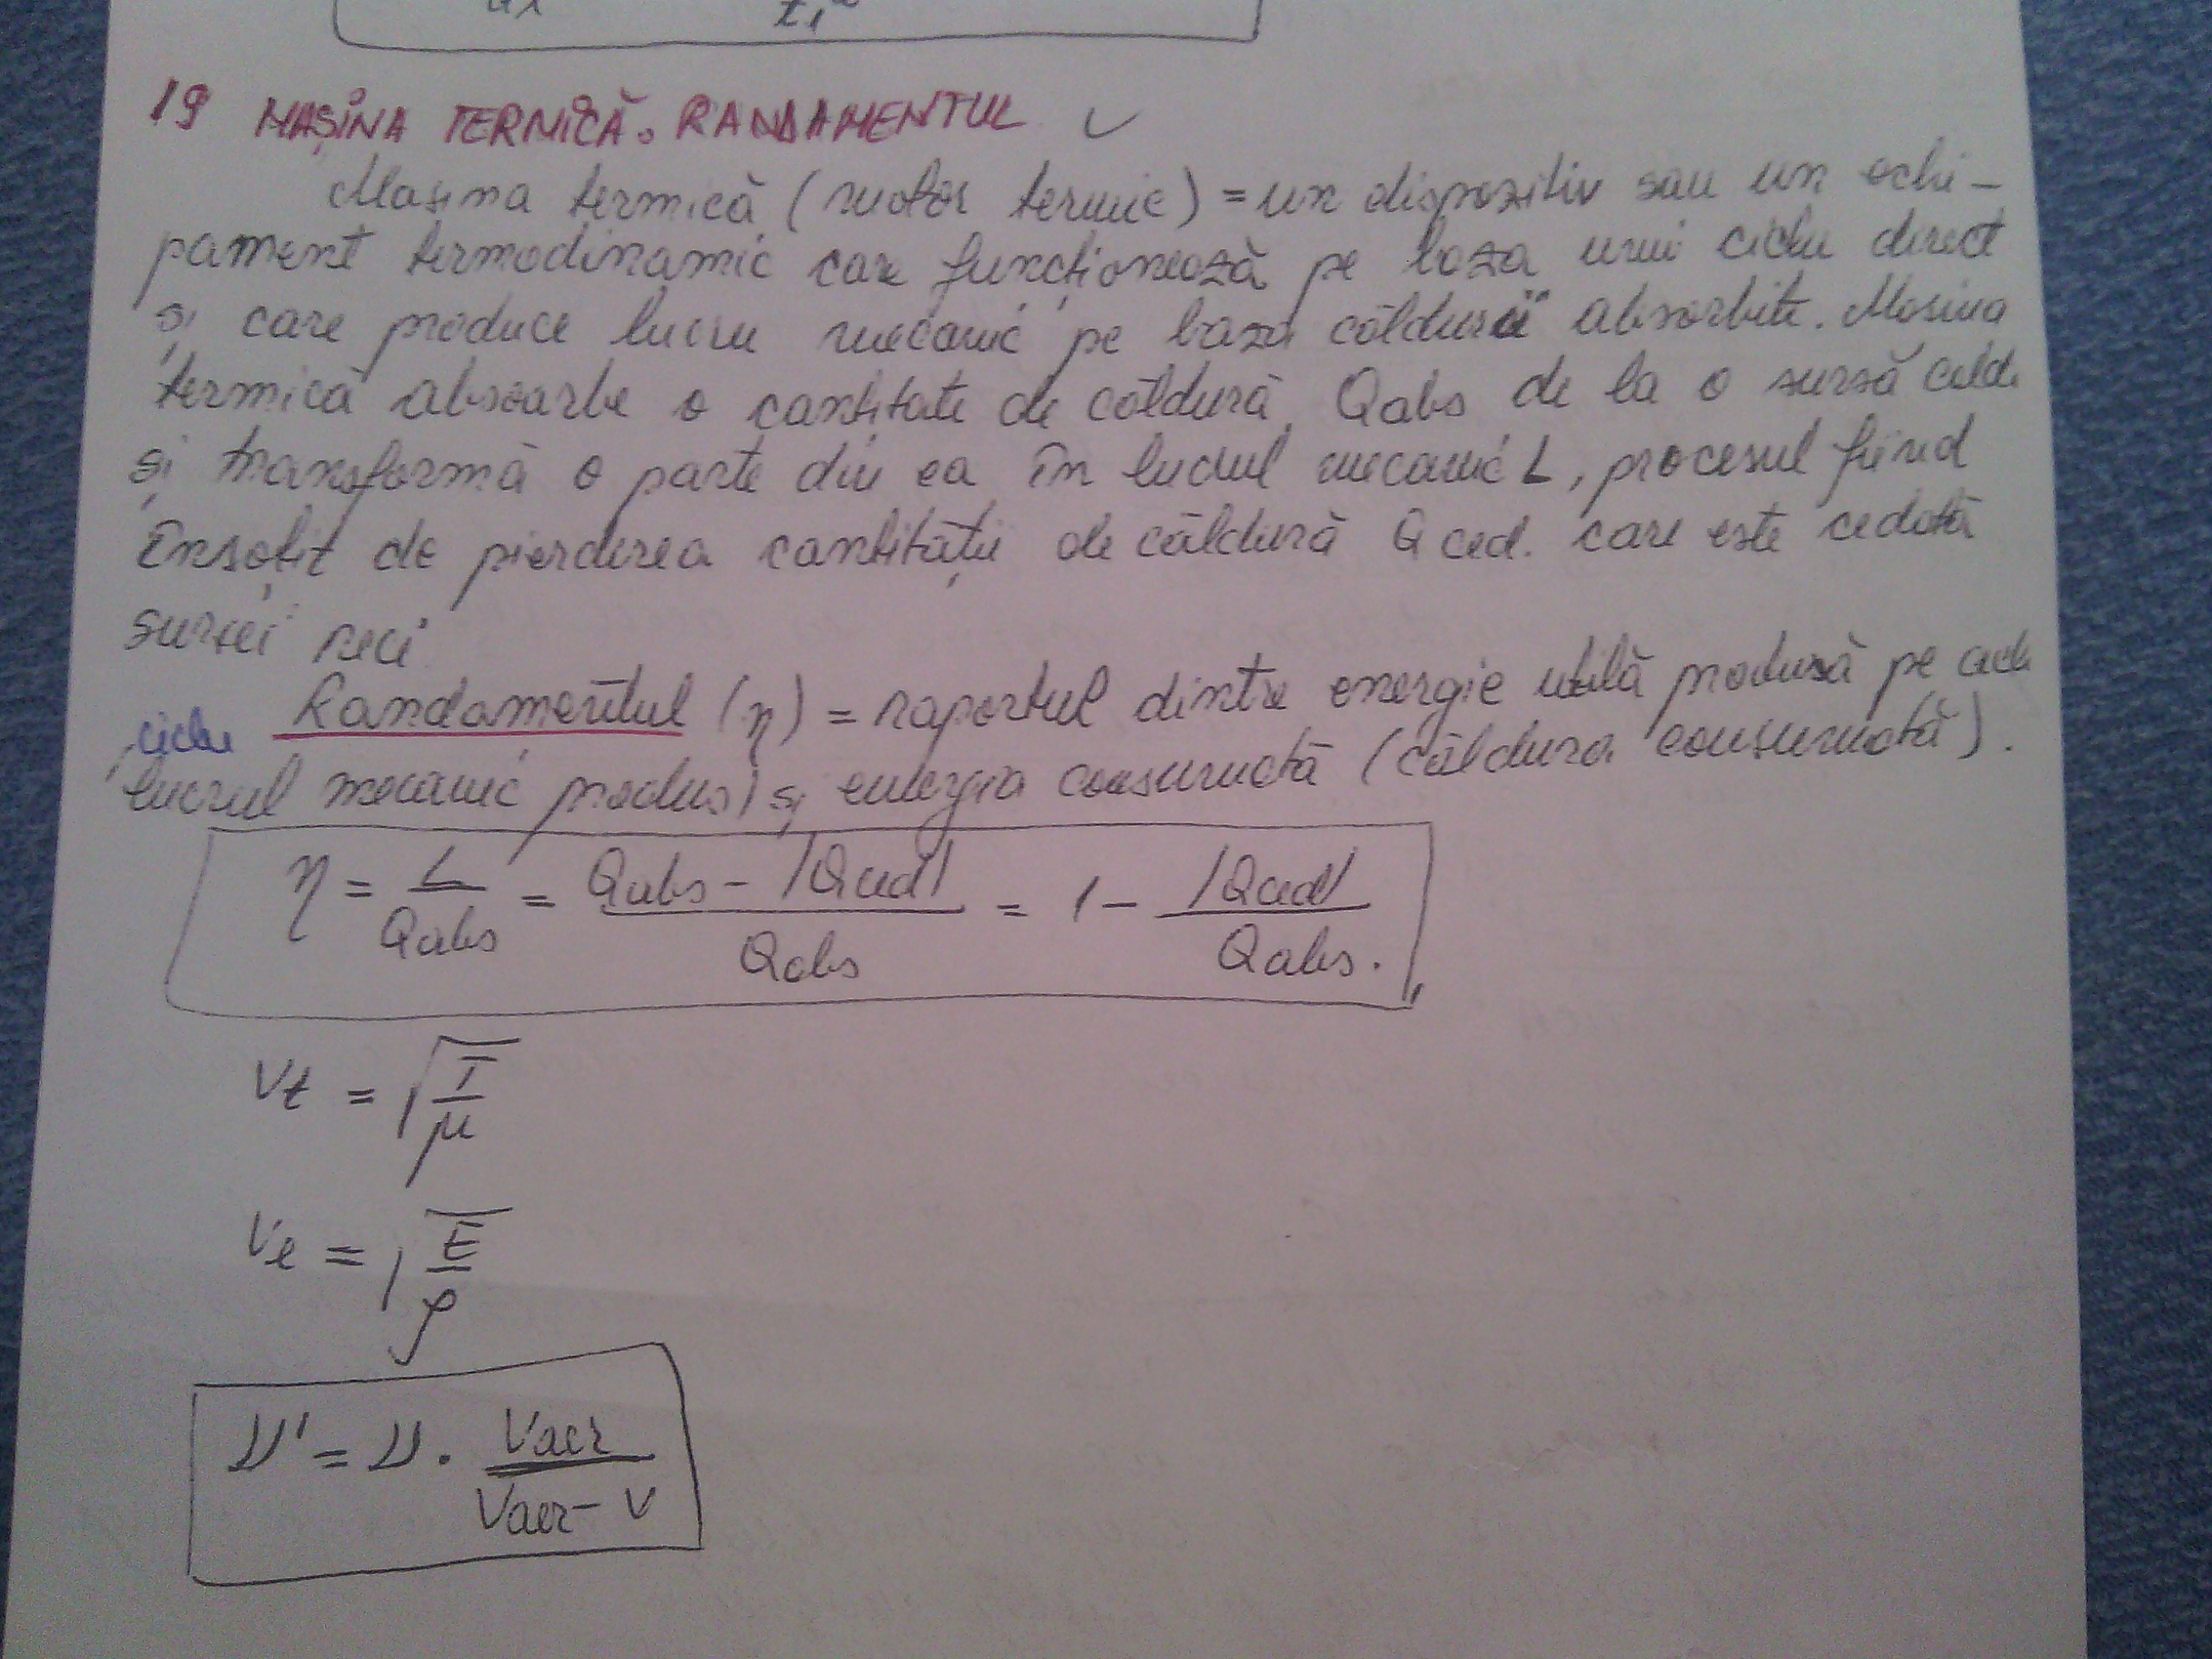 19 MAȘINA TERMICĂ. RANDAMENTUL
Mașina termică (motor termic) = un dispozitiv sau un echi-
pament termodinamic care funcționează pe baza unui ciclu direct
și care produce lucru mecanic pe baza căldurii absorbite. Mașina
termică absoarbe o cantitate de căldură Qabs de la o sursă caldă
și transformă o parte din ea în lucrul mecanic L, procesul fiind
însoțit de pierderea cantității de căldură Qced. care este cedată
sursei reci
Randamentul (η) = raportul dintre energie utilă produsă pe ciclu
ciclu
lucrul mecanic produs) și energia consumată (căldura consumată).
η = L/Qabs = (Qabs - |Qced|)/Qabs = 1 - |Qced|/Qabs.
Vt = √(T/μ)
Vl = √(E/ρ)
ν' = ν · Vaer/(Vaer - V)